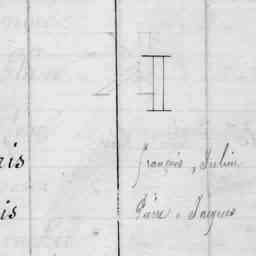 II
ris François, Julien
is Pierre, Jacques